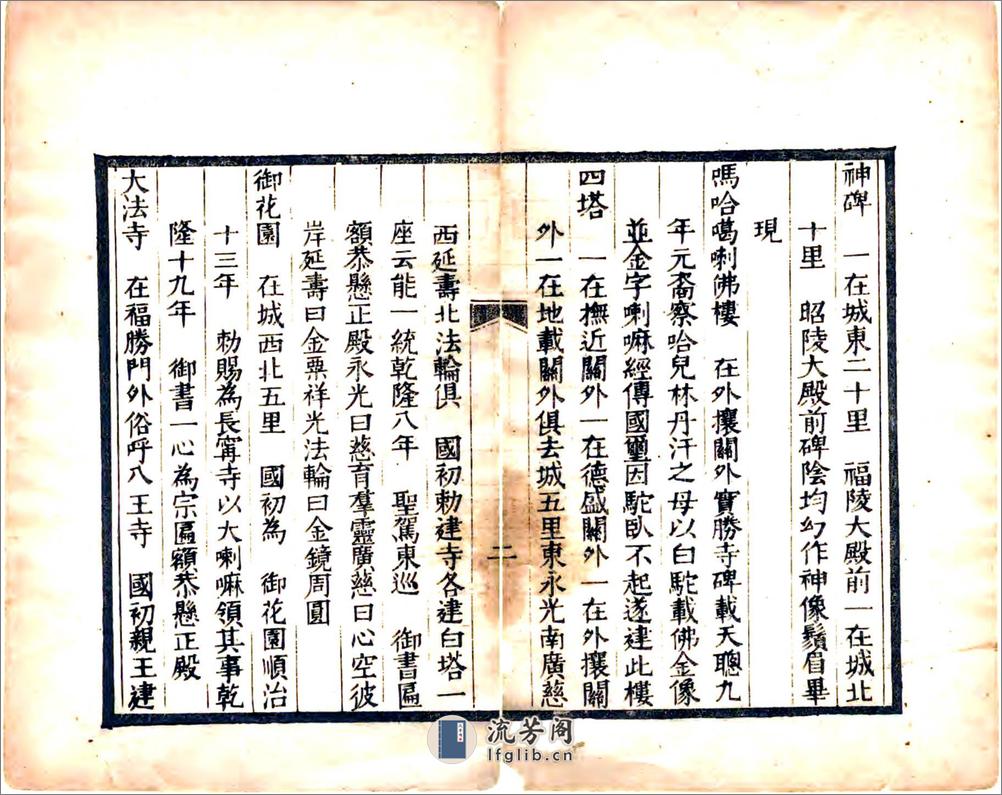 神碑　一在城東二十里　福陵大殿前一在城北
十里　昭陵大殿前碑陰均幻作神像鬚眉畢
現
嗎哈噶喇佛樓　在外攘關外實勝寺碑載天聰九
年元裔察哈兒林丹汗之母以白駝載佛金像
並金字喇嘛經傳國璽因駝臥不起遂建此樓
四塔　一在撫近關外一在德盛關外一在外攘關
外一在地載關外俱去城五里東永光南廣慈
二
西延壽北法輪俱　國初勅建寺各建白塔一
座云能一統乾隆八年　聖駕東巡　御書匾
額恭懸正殿永光曰慈育羣靈廣慈曰心空彼
岸延壽曰金粟祥光法輪曰金鏡周圓
御花園　在城西北五里　國初為　御花園順治
十三年　勅賜為長寗寺以大喇嘛領其事乾
隆十九年　御書一心為宗匾額恭懸正殿
大法寺　在福勝門外俗呼八王寺　國初親王建
流芳阁
lfglib.cn